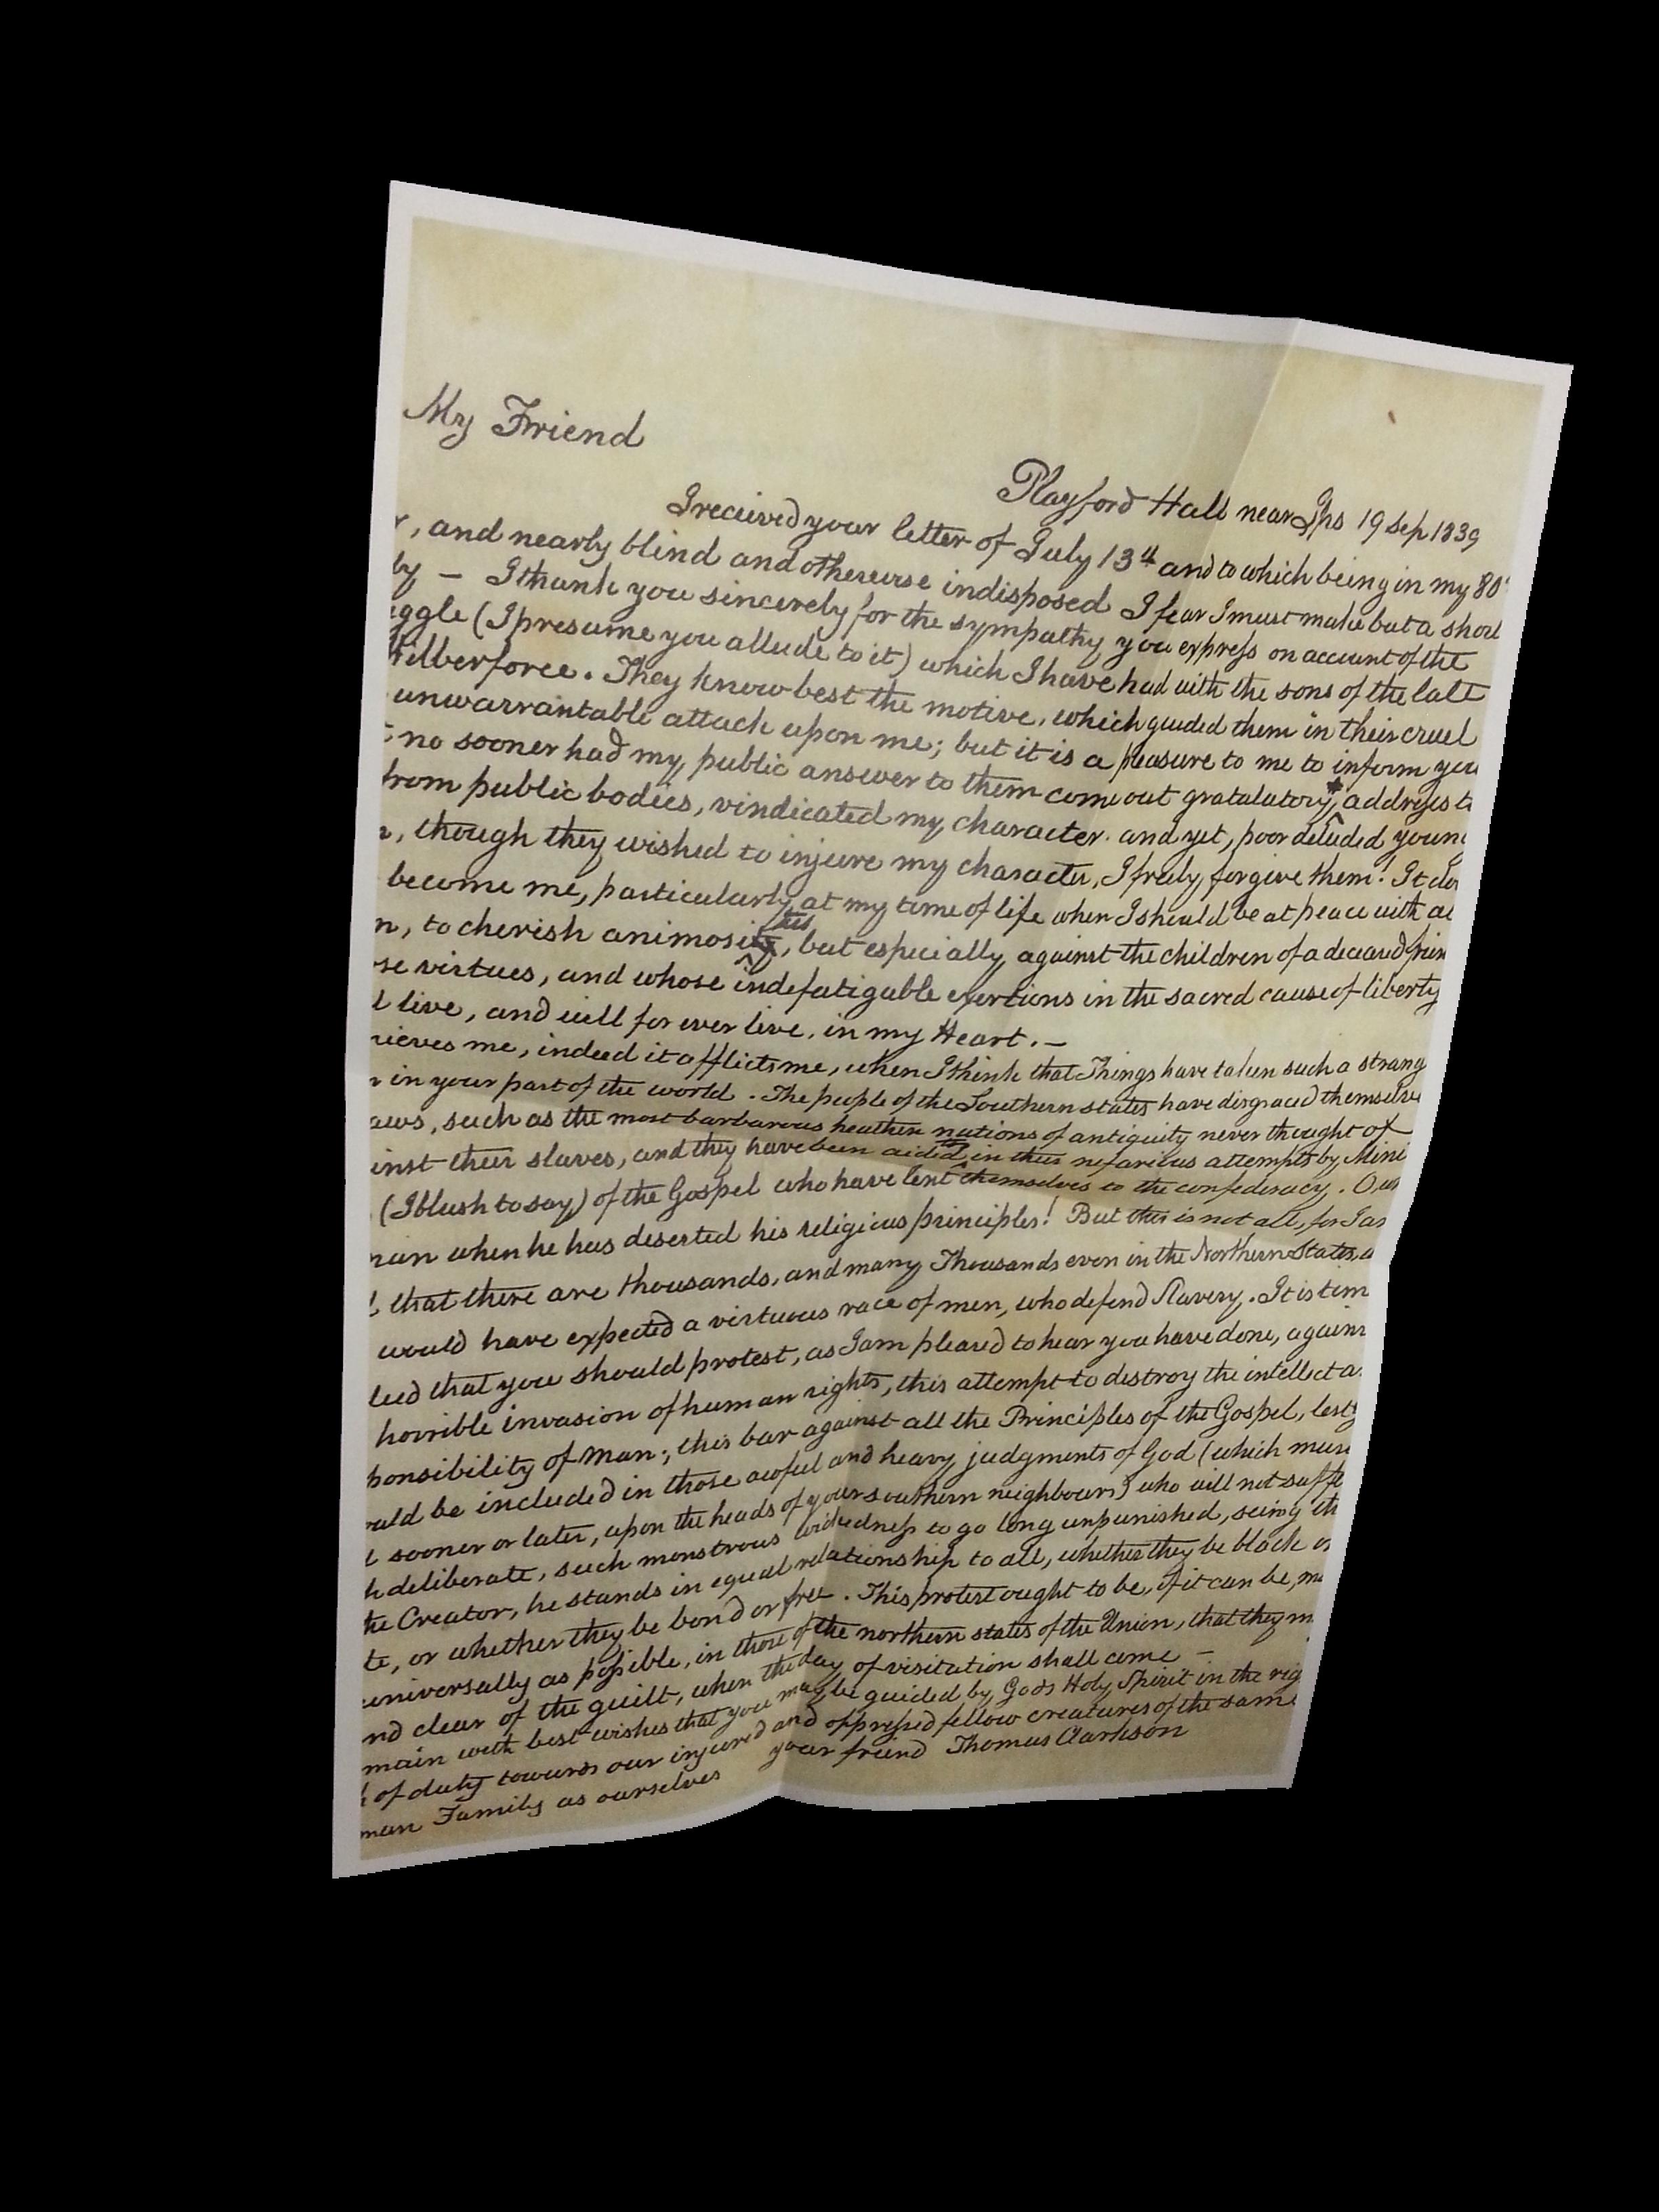 My Friend
Playford Hall near Ips 19 Sep 1839
I recieved your letter of July 13th and to which being in my 80
r, and nearly blind and otherwise indisposed I fear I must make but a short
ly – I thank you sincerely for the sympathy you express on account of the
uggle (I presume you allude to it) which I have had with the sons of the late
Wilberforce. They know best the motive, which guided them in their cruel
unwarrantable attack upon me; but it is a pleasure to me to inform you
t no sooner had my public answer to them come out gratulatory * addresses to
from public bodies, vindicated my character. and yet, poor deluded young
n, though they wished to injure my character, I freely forgive them! It do
become me, particularly at my time of life when I should be at peace with al
n, to cherish animosities, but especially against the children of a deceased frien
se virtues, and whose indefatigable exertions in the sacred cause of liberty
l live, and will for ever live, in my Heart. –
rieves me, indeed it afflicts me, when I think that Things have taken such a strang
n in your part of the world. The people of the Southern states have disgraced themselve
aws, such as the most barbarous heathen nations of antiquity never thought of
inst their slaves, and they have been aided in their nefarious attempts by Mini
(I blush to say) of the Gospel who have lent themselves to the confederacy. O,
man when he has deserted his religious principles! But this is not all, for I am
that there are thousands, and many Thousands even in the Northern States, w
would have expected a virtuous race of men, who defend Slavery. It is tim
deed that you should protest, as I am pleased to hear you have done, again
horrible invasion of human rights, this attempt to destroy the intellect a
ponsibility of Man; this bar against all the Principles of the Gospel, lest y
ould be included in those awful and heavy judgments of God (which must
l sooner or later, upon the heads of your southern neighbours) who will not suffe
h deliberate, such monstrous wickedness to go long unpunished, seeing th
the Creator, he stands in equal relationship to all, whether they be black or
te, or whether they be bond or free. This protest ought to be, if it can be, m
universally as possible, in those of the northern states of the Union, that they m
nd clear of the guilt, when the day of visitation shall come –
main with best wishes that you may be guided by Gods Holy Spirit in the rig
of duty towards our injured and oppressed fellow creatures of the same
man Family as ourselves your friend Thomas Clarkson